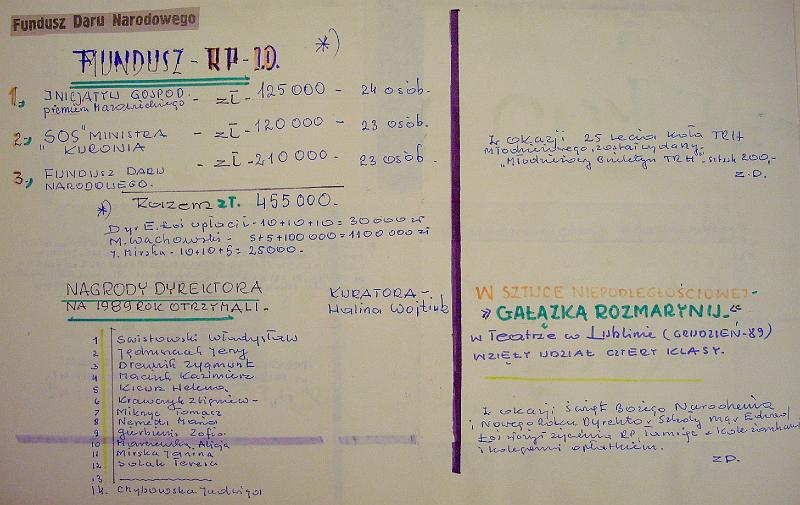 Fundusz Daru Narodowego
FUNDUSZ - RP - I.O. *)
1., INICJATYW GOSPOD. - zł - 125 000 - 24 osób.
premiera Mazowieckiego
2., „SOS" MINISTRA - zł - 120 000 - 23 osób.
KURONIA
3., FUNDUSZ DARU - zł - 210 000 - 23 osób.
NARODOWEGO.
*) Razem zł. 455 000.
Dyr E. Łoś wpłacił - 10+10+10 = 30 000 zł
M. Wąchowski - 5+5+100 000 = 1100 000 zł
J. Mirska - 10+10+5 = 25000.
NAGRODY DYREKTORA
NA 1989 ROK OTRZYMALI -
1 Świstowski Władysław
2 Jerzy
3 Drewnik Zygmunt
4 Maciuk Kazimierz
5 Kicuk Helena
6 Krawczyk Zbigniew -
7 Tomasz
8 Maria
9 Zofia
10 Alicja
11 Mirska Janina
12 Teresa
13
14. Chybowska Jadwiga
KURATORA -
Halina Wojtiuk
Z okazji 25 lecia koła TRH
Młodzieżowego, został wydany
„Młodzieżowy Biuletyn TRH" - sztuk 200,-
Z.D.
W SZTUCE NIEPODLEGŁOŚCIOWEJ -
» GAŁĄZKA ROZMARYNU «
w Teatrze w Lublinie (GRUDZIEŃ-89)
WZIĘŁY UDZIAŁ CZTERY KLASY.
Z okazji Świąt Bożego Narodzenia
i Nowego Roku Dyrektor Szkoły mgr Edward
Łoś złożył życzenia RP, łamiąc z koleżankami
i kolegami opłatkiem.
ZD.